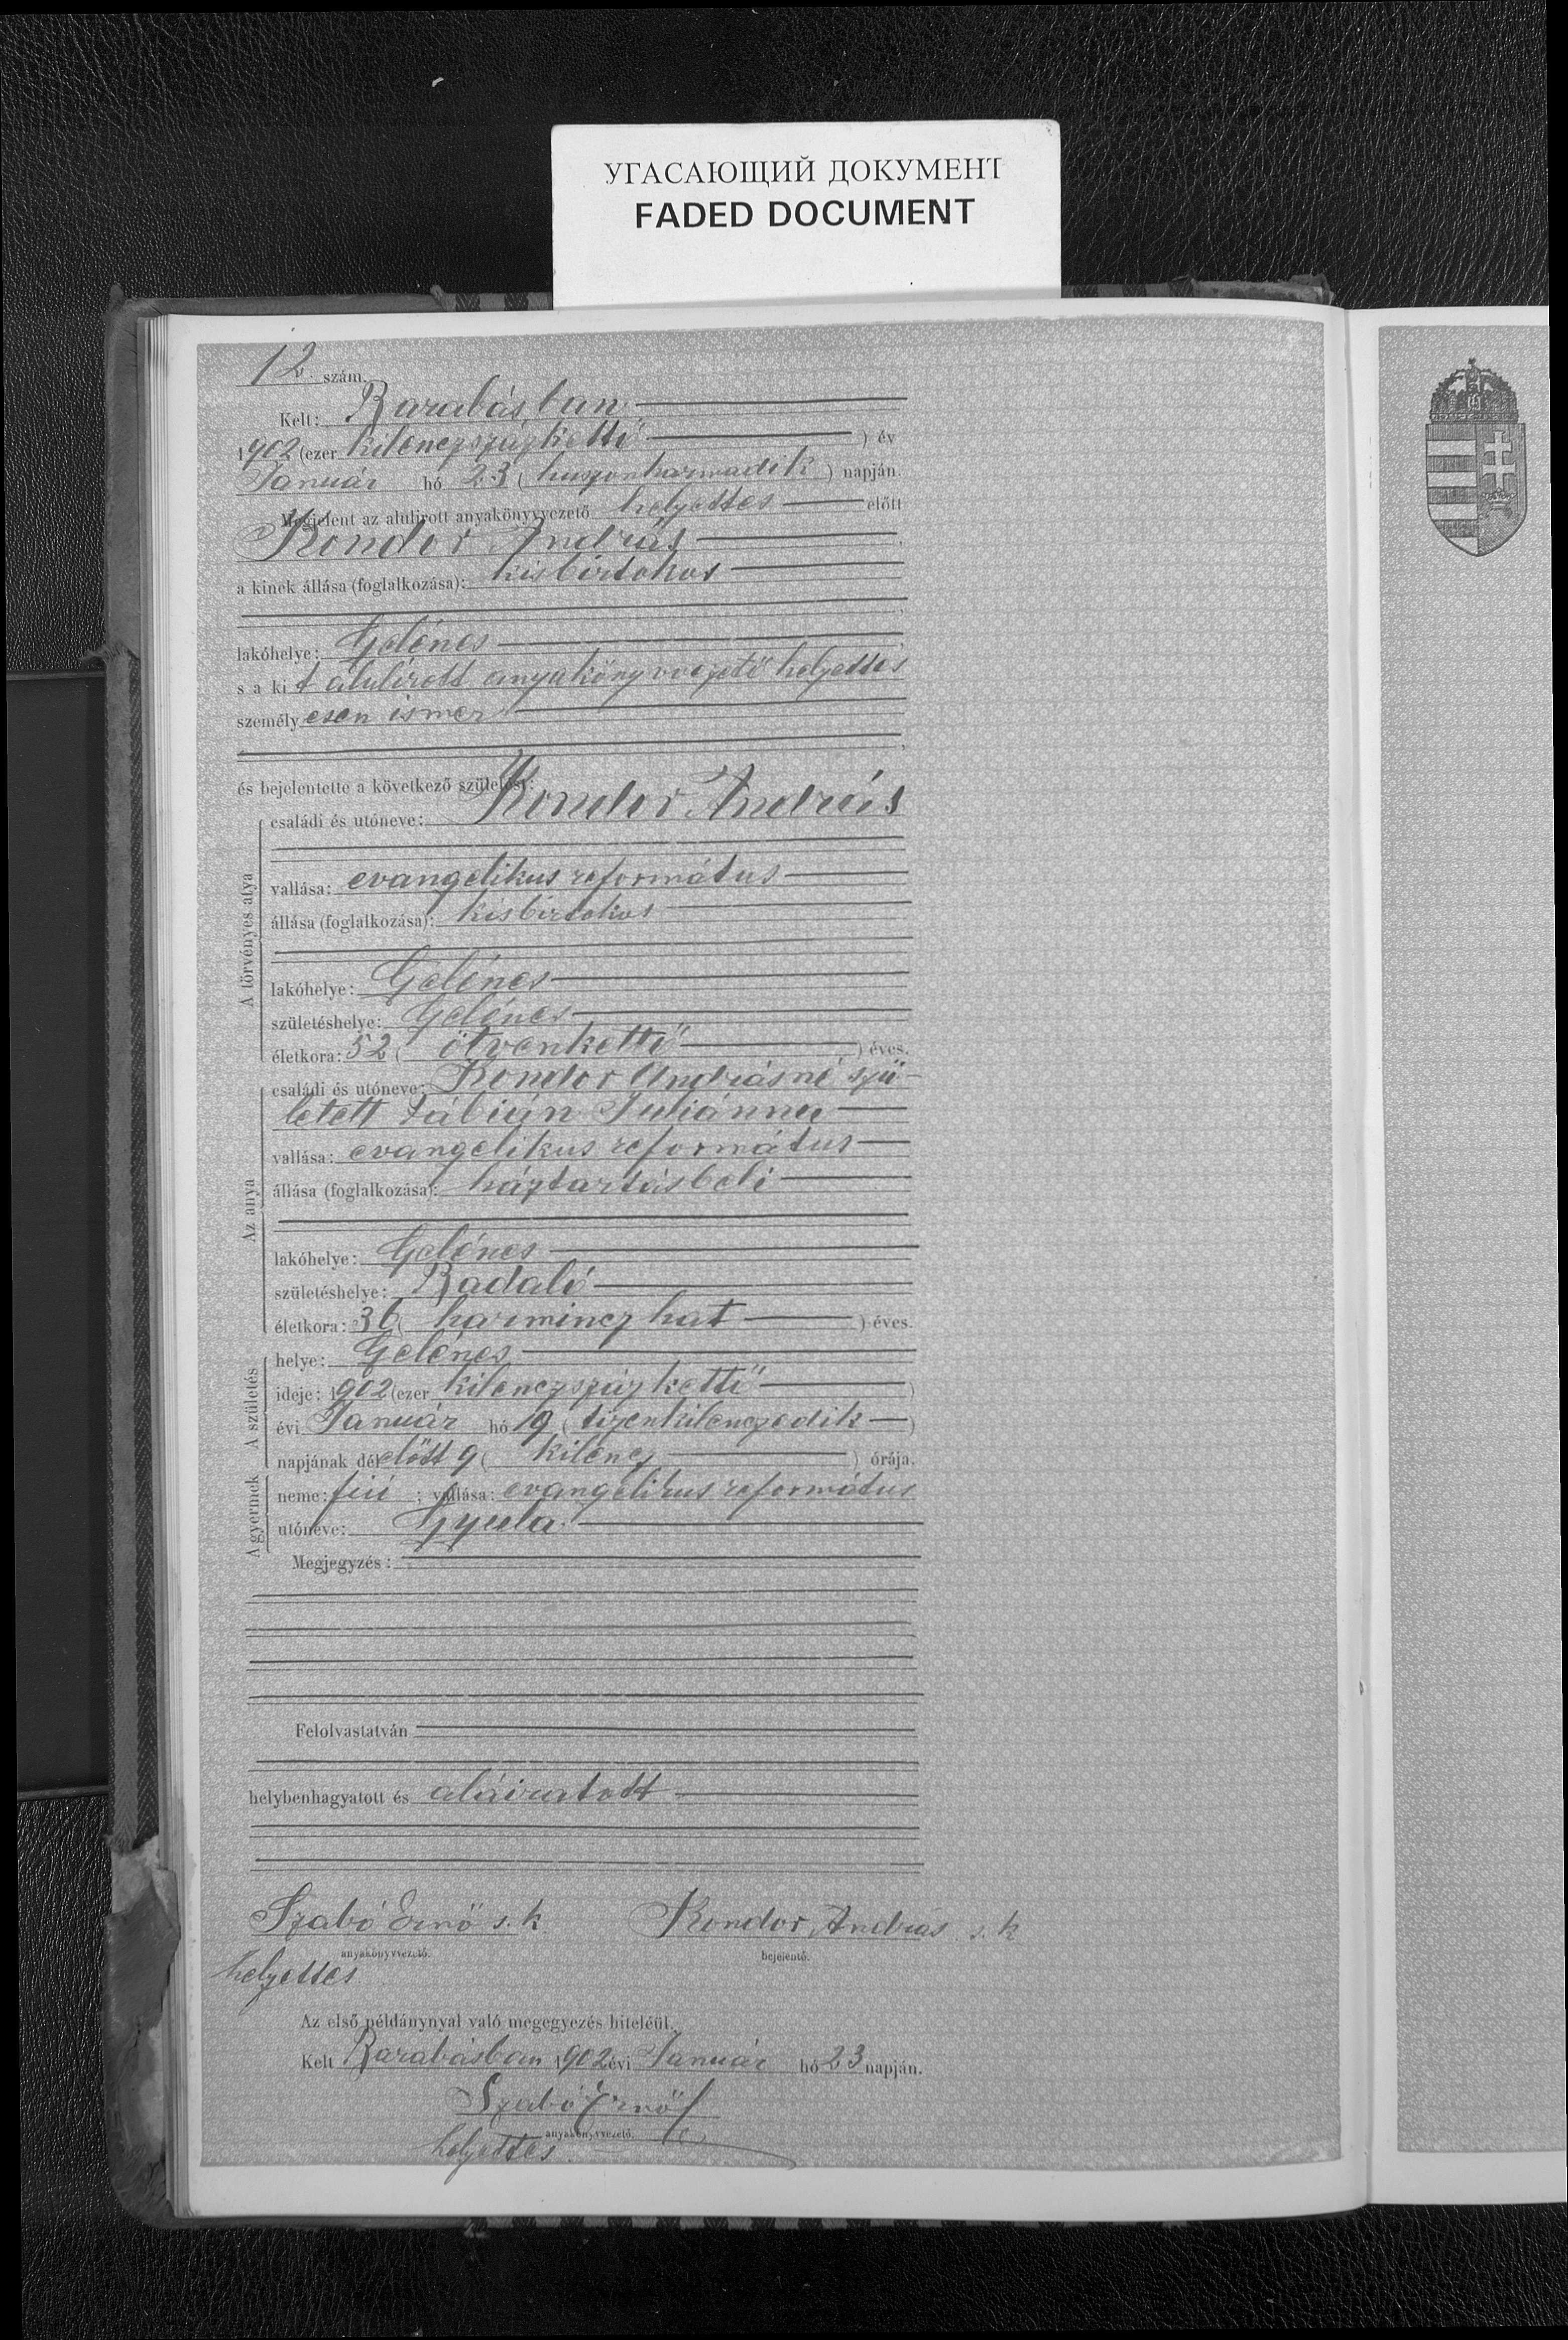 УГАСАЮЩИЙ ДОКУМЕНТ
FADED DOCUMENT
12. szám.
Kelt: Barabásban
1902 (ezer kilenczszázkettő ) év
Január hó 23 ( huszonharmadik ) napján.
Megjelent az alulirott anyakönyvvezető helyettes előtt
Kondor András
a kinek állása (foglalkozása): kisbirtokos
lakóhelye: Gelénes
s a ki t alulirott anyakönyvvezető helyettes
személy esen ismer
és bejelentette a következő születést:
A törvényes atya
családi és utóneve: Kondor András
vallása: evangelikus református
állása (foglalkozása): kisbirtokos
lakóhelye: Gelénes
születéshelye: Gelénes
életkora: 52 ( ötvenkettő ) éves.
Az anya
családi és utóneve: Kondor Andrásné szü-
letett Fábián Juliánna
vallása: evangelikus református
állása (foglalkozása): háztartásbeli
lakóhelye: Gelénes
születéshelye: Badaló
életkora: 36 ( harmincz hat ) éves.
A születés
helye: Gelénes
ideje: 1902 (ezer kilenczszáz kettő )
évi Január hó 19 ( tizenkilenczedik )
napjának dél előtt 9 ( kilencz ) órája.
A gyermek
neme: fiú ; vallása: evangelikus református
utóneve: Gyula.
Megjegyzés:
Felolvastatván
helybenhagyatott és aláiratott
Szabó Ernő s. k. Kondor András s. k
anyakönyvvezető. bejelentő.
helyettes
Az első példánynyal való megegyezés hiteléül.
Kelt Barabásban 1902 évi Január hó 23 napján.
Szabó Ernő
anyakönyvvezető.
helyettes